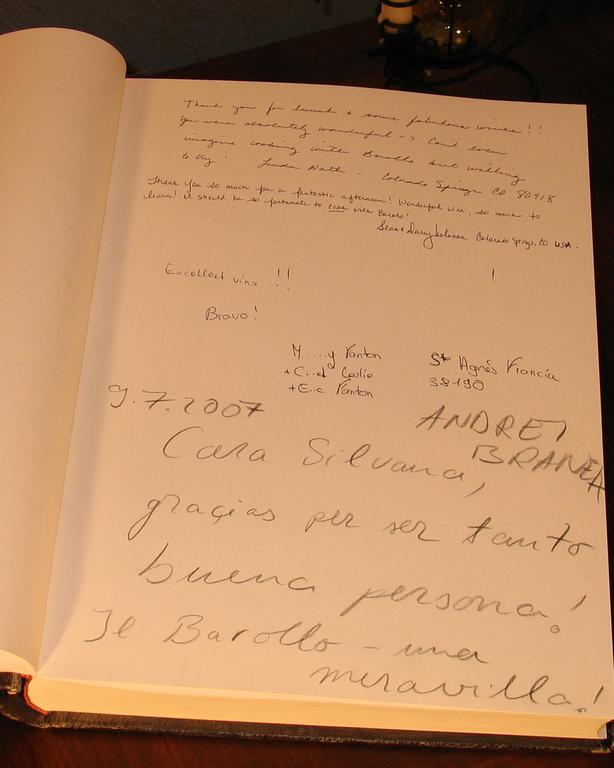 Thank you for lunch + some fabulous wines!!
You were absolutely wonderful -> Can't even
imagine cooking with Barollo but willing
to try! Linda Nath - Colorado Springs CO 80918
Thank you so much for a fantastic afternoon! Wonderful wine, so much to
learn! I should be so fortunate to cook with Barolo!
Sean + Darcy Colorado Springs, CO USA.
Excellent vins !! !
Bravo!
M.....y Vanton
+C...d Coolio
+E..c Vanton
Ste Agnés Francia
38190
9.7.2007
ANDREJ
BRANEA
Cara Silvana,
graçias per ser tanto
buena persona!
Il Barollo - una
meravilla!